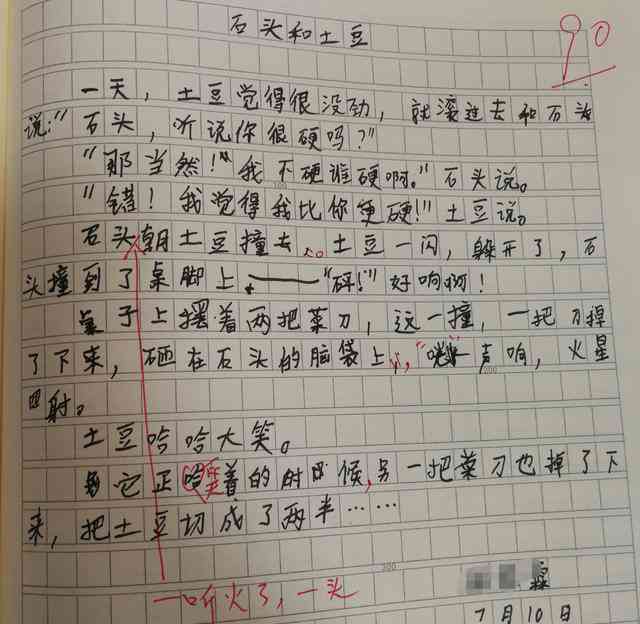 石头和土豆
90
一天，土豆觉得很没劲，就滚过去和石头
说："石头，听说你很硬吗？"
"那当然！"我不硬谁硬啊。"石头说。
"错！我觉得我比你更硬！"土豆说。
石头朝土豆撞去。土豆一闪，躲开了，石
头撞到了桌脚上。——"砰！"好响啊！
桌子上摆着两把菜刀，这一撞，一把刀掉
了下来，砸在石头的脑袋上，声响，火星
四射。
土豆哈哈大笑。
它正哈笑着的时候，另一把菜刀也掉了下
来，把土豆切成了两半……
一听火了，一头
7月10日